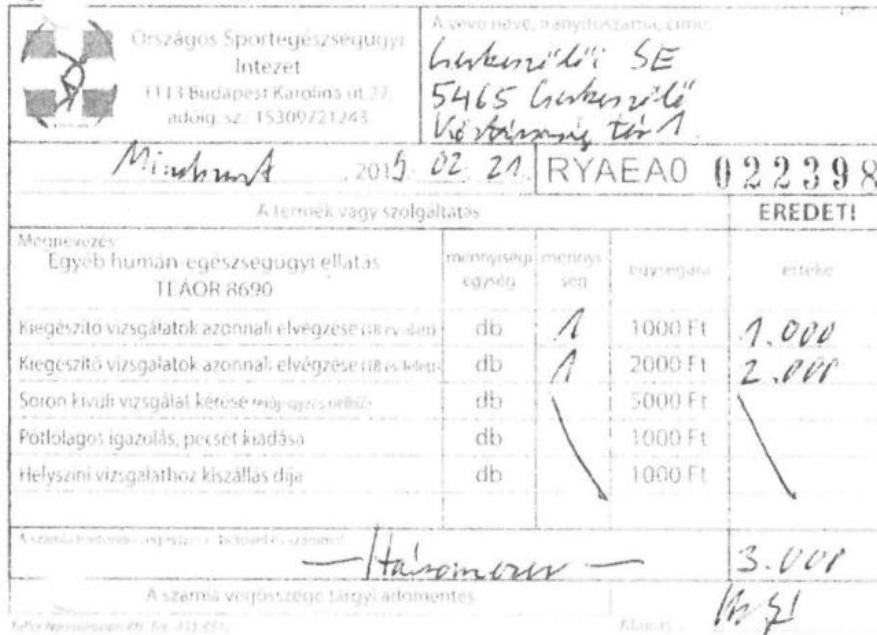 Országos Sportegészségügyi
Intézet
1113 Budapest Karolina út 27.
adóig. sz.: 15309721243
A vevő neve, irányítószáma, címe:
Cserkeszőlői SE
5465 Cserkeszőlő
Köztársaság tér 1.
2015 02 21. RYAEA0 022398
A termék vagy szolgáltatás EREDETI
Megnevezés:
Egyéb humán-egészségügyi ellátás
TEÁOR 8690
mennyiségi egység
mennyiség
egységára
értéke
Kiegészítő vizsgálatok azonnali elvégzése (18 év alatt) db 1 1000 Ft 1.000
Kiegészítő vizsgálatok azonnali elvégzése (18 év felett) db 1 2000 Ft 2.000
Soron kívüli vizsgálat kérése db 5000 Ft
Pótlólagos igazolás, pecsét kiadása db 1000 Ft
Helyszíni vizsgálathoz kiszállás díja db 1000 Ft
— Háromezer — 3.000
A számla végösszege tárgyi adómentes